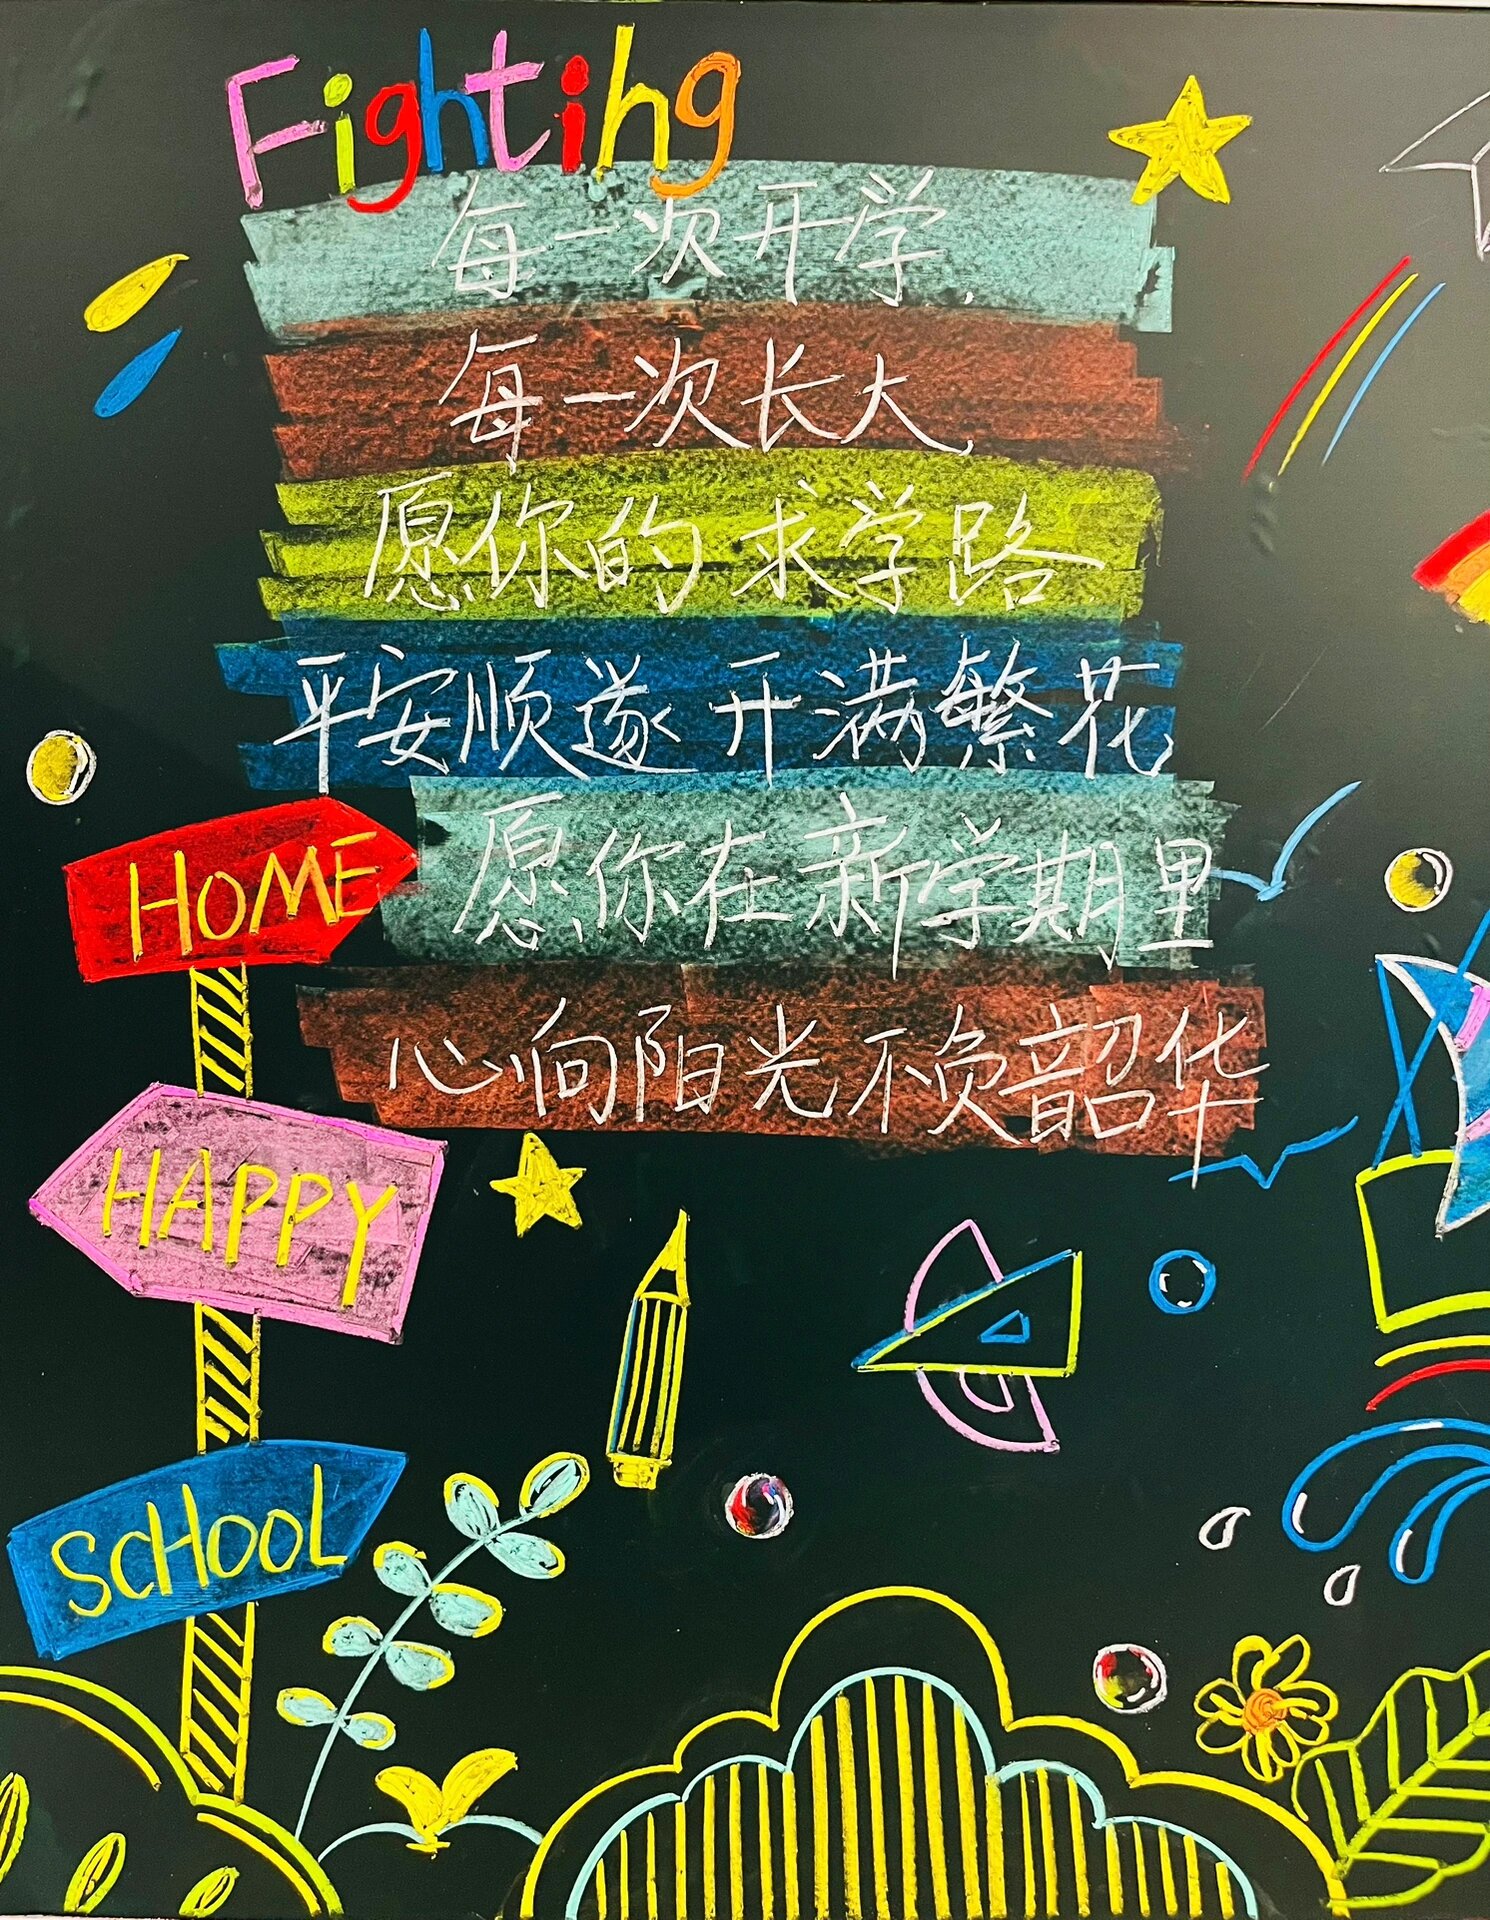 Fighting
每一次开学.
每一次长大,
愿你的求学路
平安顺遂 开满繁花
愿你在新学期里
心向阳光不负韶华
HOME
HAPPY
SCHOOL